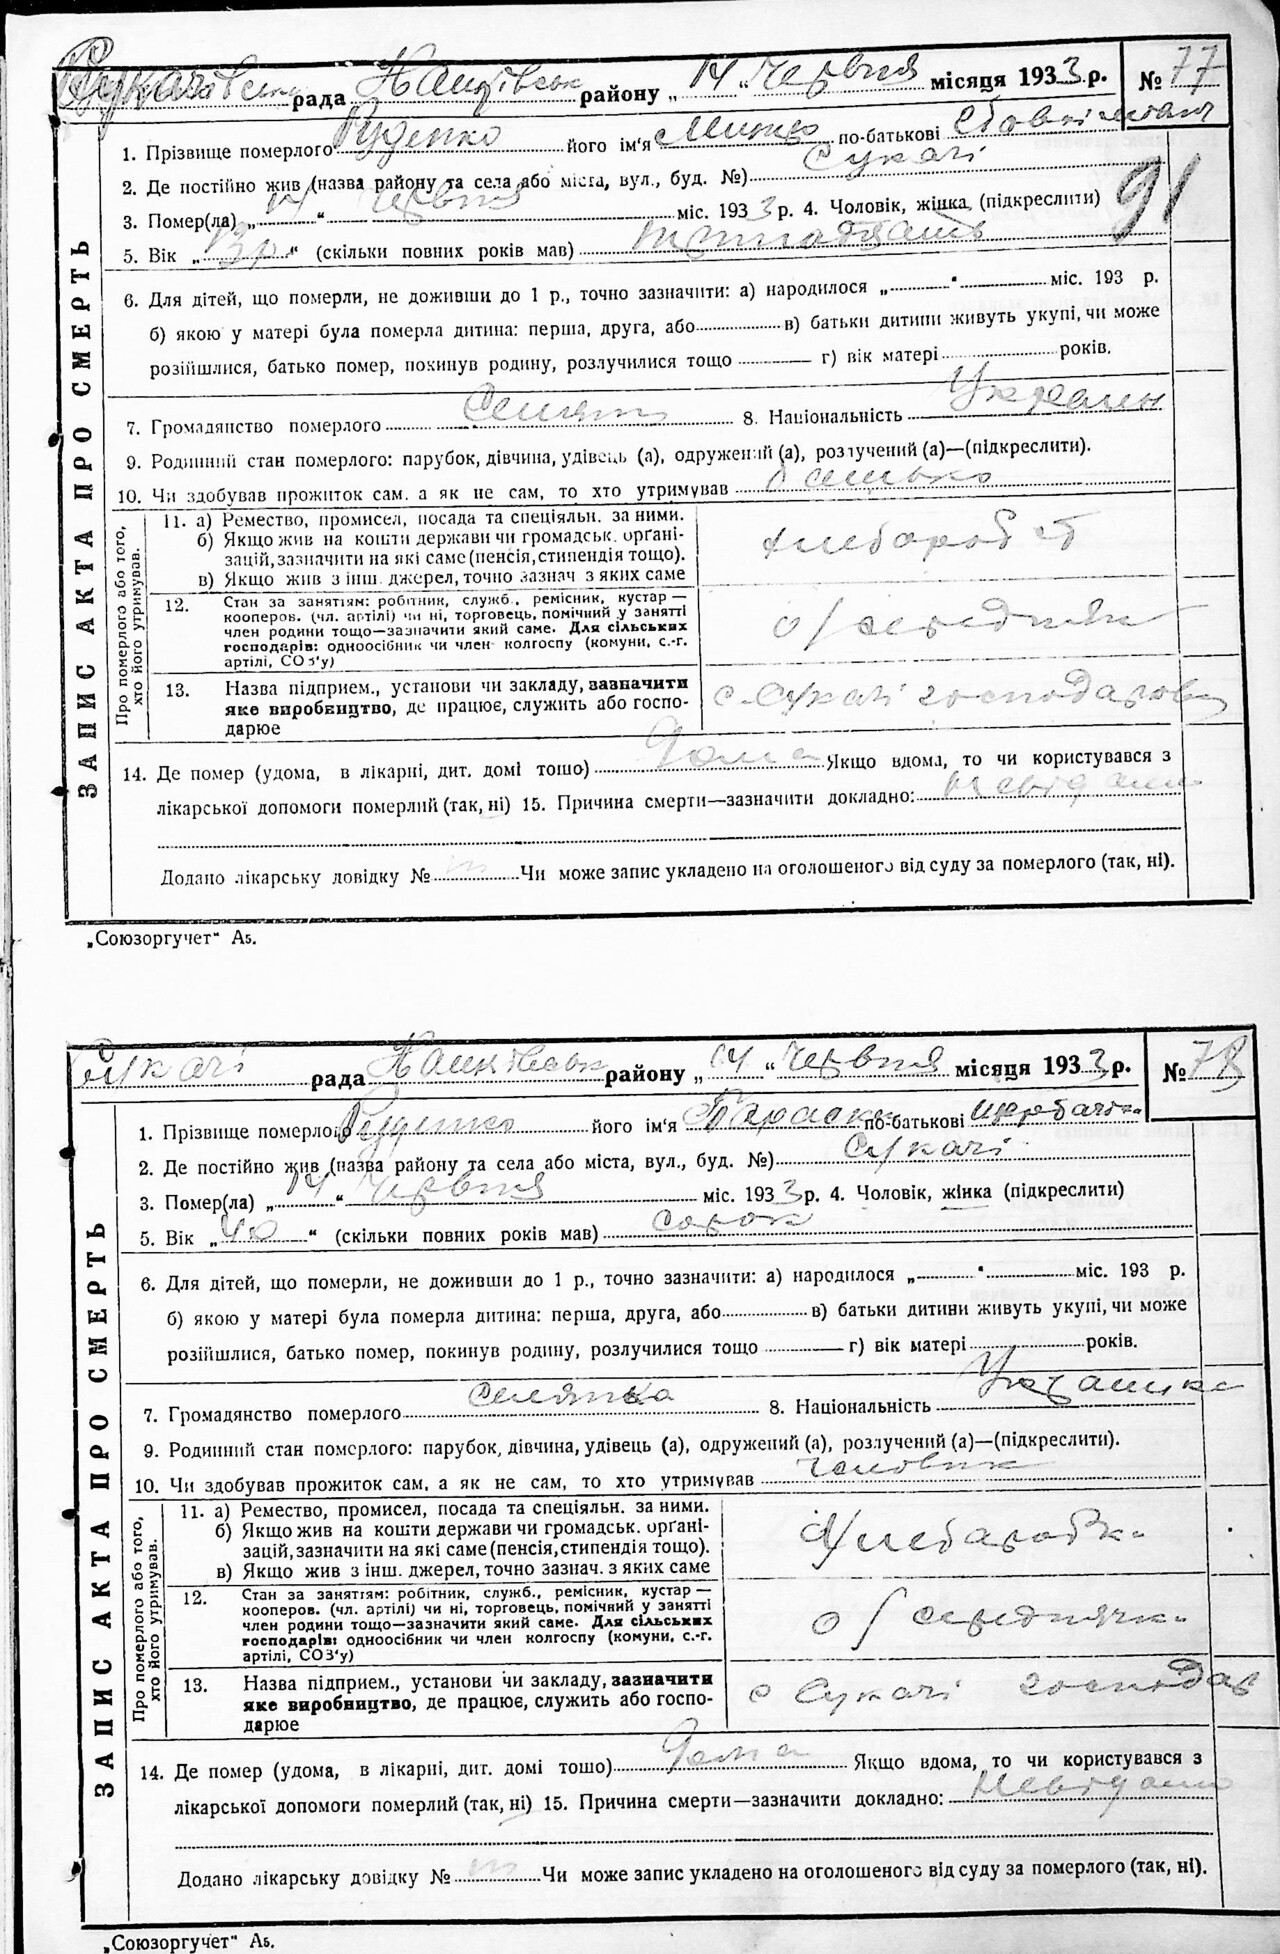 рада району „14“ Червня місяця 1933 р. № 77
1. Прізвище померлого Руденко його ім'я по-батькові
2. Де постійно жив (назва району та села або міста, вул., буд. №) Сукачі
3. Помер(ла) „14“ Червня міс. 1933 р. 4. Чоловік, жінка (підкреслити)
91
5. Вік „13 р.“ (скільки повних років мав) тринадцять
6. Для дітей, що померли, не доживши до 1 р., точно зазначити: а) народилося „ “ міс. 193 р.
б) якою у матері була померла дитина: перша, друга, або в) батьки дитини живуть укупі, чи може
розійшлися, батько помер, покинув родину, розлучилися тощо г) вік матері років.
7. Громадянство померлого Селянин 8. Національність Украин
9. Родинний стан померлого: парубок, дівчина, удівець (а), одружений (а), розлучений (а)—(підкреслити).
10. Чи здобував прожиток сам, а як не сам, то хто утримував батько
ЗАПИС АКТА ПРО СМЕРТЬ
Про померлого або того, хто його утримував.
11. а) Ремество, промисел, посада та спеціяльн. за ними.
б) Якщо жив на кошти держави чи громадськ. органі-
зацій, зазначити на які саме (пенсія, стипендія тощо).
в) Якщо жив з інш. джерел, точно зазнач з яких саме
хлебороб
12. Стан за занятіям: робітник, служб., ремісник, кустар—
кооперов. (чл. артілі) чи ні, торговець, помічний у занятті
член родини тощо—зазначити який саме. Для сільських
господарів: одноосібник чи член колгоспу (комуни, с.-г.
артілі, СОЗ'у)
о/середняк
13. Назва підприєм., установи чи закладу, зазначити
яке виробництво, де працює, служить або госпо-
дарює
с. Сукачі
14. Де помер (удома, в лікарні, дит. домі тощо) дома Якщо вдома, то чи користувався з
лікарської допомоги померлий (так, ні) 15. Причина смерти—зазначити докладно: Невідомо
Додано лікарську довідку № Чи може запис укладено на оголошеного від суду за померлого (так, ні).
„Союзоргучет“ А5.
Сукачі рада району „14“ Червня місяця 1933 р. № 78
1. Прізвище померлого Руденко його ім'я Параска по-батькові
2. Де постійно жив (назва району та села або міста, вул., буд. №) Сукачі
3. Помер(ла) „14“ Червня міс. 1933 р. 4. Чоловік, жінка (підкреслити)
5. Вік „40“ (скільки повних років мав) сорок
6. Для дітей, що померли, не доживши до 1 р., точно зазначити: а) народилося „ “ міс. 193 р.
б) якою у матері була померла дитина: перша, друга, або в) батьки дитини живуть укупі, чи може
розійшлися, батько помер, покинув родину, розлучилися тощо г) вік матері років.
7. Громадянство померлого селянка 8. Національність Украинка
9. Родинний стан померлого: парубок, дівчина, удівець (а), одружений (а), розлучений (а)—(підкреслити).
10. Чи здобував прожиток сам, а як не сам, то хто утримував человик
ЗАПИС АКТА ПРО СМЕРТЬ
Про померлого або того, хто його утримував.
11. а) Ремество, промисел, посада та спеціяльн. за ними.
б) Якщо жив на кошти держави чи громадськ. органі-
зацій, зазначити на які саме (пенсія, стипендія тощо).
в) Якщо жив з інш. джерел, точно зазнач. з яких саме
12. Стан за занятіям: робітник, служб., ремісник, кустар—
кооперов. (чл. артілі) чи ні, торговець, помічний у занятті
член родини тощо—зазначити який саме. Для сільських
господарів: одноосібник чи член колгоспу (комуни, с.-г.
артілі, СОЗ'у)
о/середнячка
13. Назва підприєм., установи чи закладу, зазначити
яке виробництво, де працює, служить або госпо-
дарює
с Сукачі господар
14. Де помер (удома, в лікарні, дит. домі тощо) Дома Якщо вдома, то чи користувався з
лікарської допомоги померлий (так, ні) 15. Причина смерти—зазначити докладно: Невідомо
Додано лікарську довідку № Чи може запис укладено на оголошеного від суду за померлого (так, ні).
„Союзоргучет“ А5.